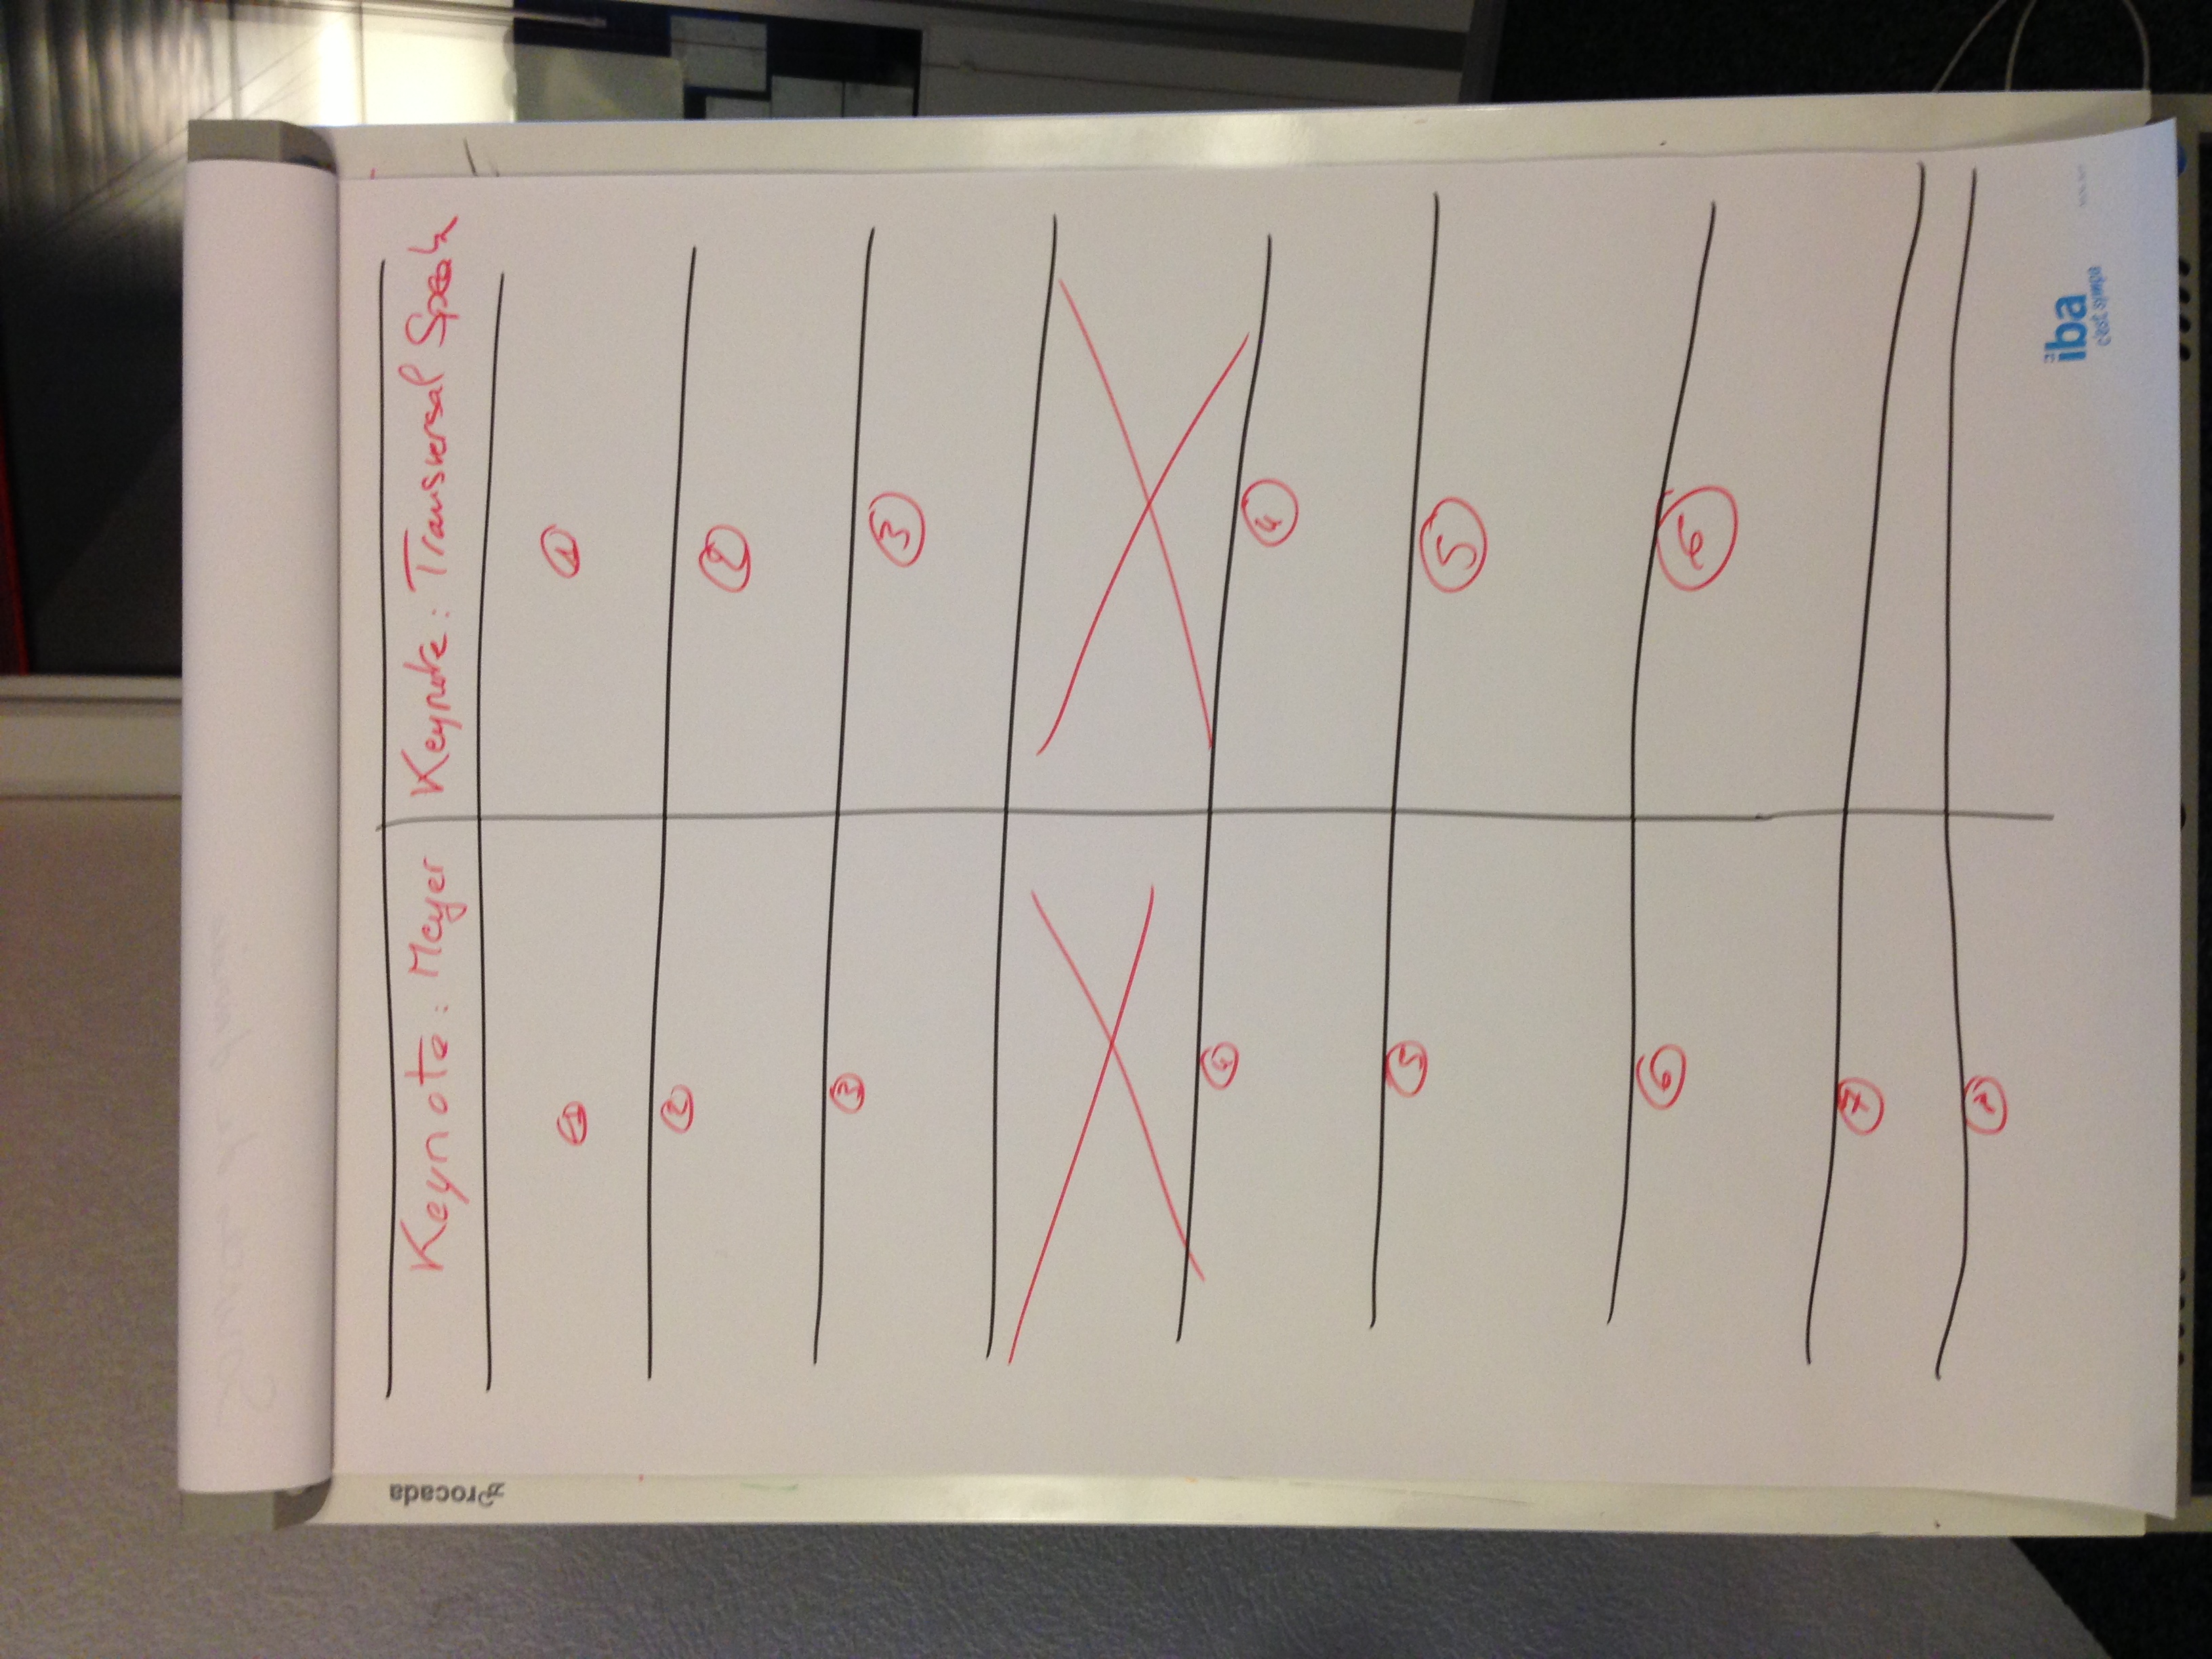 Procada
Keynote: Meyer
Keynote: Transversal Speak
1
1
2
2
3
3
4
4
5
5
6
6
7
iba
c'est sympa